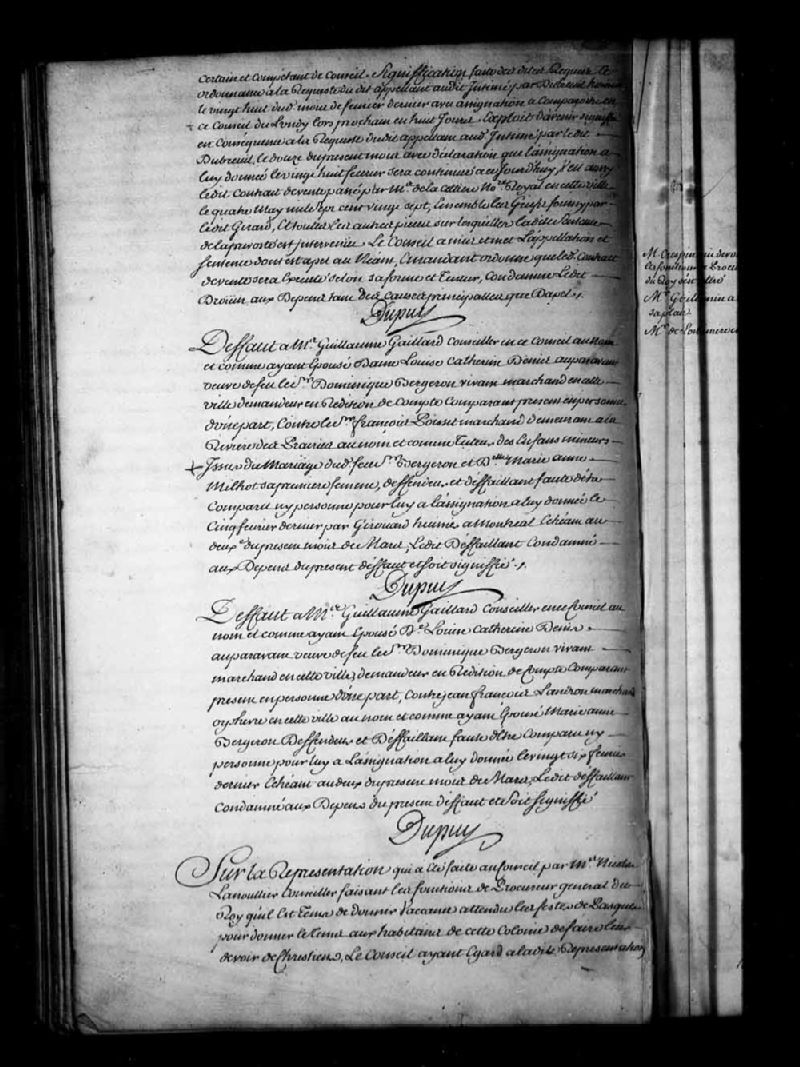 certain et Compétant de Conseil. Signiffication faite des dites Requete et
ordonnance a la Requeste du dit appellant audit Intimé par Dubreuil huissier
le vingt huit dud. mois de fevrier dernier avec assignation a Comparoitre en
ce Conseil du Lundy lors prochain en huit Jours,
en Consequence a la Requeste dudit appellant aud. Intimé par ledit
Dubreuil, le douze du present mois avec declaration que l'assignation a
luy donnée le vingt huit fevrier sera continuée a au Jourdhuy, Veu aussy
ledit Contract de vente passé par Me. de la cettiere No.re Royal en cette ville
le quatre May mil sept cent vingt sept, Ensemble les Griefs fourny par
ledit Girard, Et toutes les autres pieces sur lesquelles la dite Sentence
de la prevosté est Intervenue. Le Conseil a mis et met L'appellation et
sentence dont est apel au Neant, Emandant ordonne que led. Contract
de vente sera Executé selon sa forme et Teneur, Condamne ledit
Drouin aux Depens tant des causes principalles que D'apel.
Dupuy
Deffaut a Me. Guillaume Gaillard Conseiller en ce Conseil au Nom
et comme ayant Epousé Dame Louise Catherine Denis auparavant
veuve de feu le Sr. Dominique Bergeron vivant marchand en cette
ville demandeur en Reddition de Compte Comparant present en personne
d'une part, Contre le Sr. françois Loisel marchand demeurant a la
Riviere des Prairies au nom et comme Tuteur des Enfans mineurs
Issus du Mariage dud. feu Sr. Bergeron et Dlle. Marie Anne
Milhot sa premiere femme, deffendeur et deffaillant faute d'etre
Comparu ny personne pour luy a l'assignation a luy donnée le
Cinq fevrier dernier par Girouard huissier a Montreal Echéant au
deuxe. du present mois de Mars, Ledit Deffaillant Condamné
aux Depens du present deffaut et soit signiffié.
Dupuy
Deffaut a Me. Guillaume Gaillard Conseiller en ce Conseil au
nom et comme ayant Epousé De. Louise Catherine Denis
auparavant veuve de feu le Sr. Dominique Bergeron vivant
marchand en cette ville demandeur en Reddition de Compte Comparant
present en personne d'une part, Contre Jean françois Landron marchand
orphevre en cette ville au nom et comme ayant Epousé Marie anne
Bergeron Deffendeur et Deffaillant faute d'etre Comparu ny
personne pour luy a L'assignation a luy donnée le vingt six fevrier
dernier Echéant au deux du present mois de Mars, Ledit deffaillant
Condamné aux Depens du present deffaut et soit signiffié
Dupuy
Sur la Representation qui a été faite au Conseil par Me. Nicolas
Lanoullier Conseiller faisant les fonctions de Procureur general du
Roy qu'il est Tems de donner Vaccance attendu les festes de Pasques
pour donner le tems aux habitans de cette Colonie de faire leur
devoir de Chrestiens, Le Conseil ayant Egard a la dite Representation
les fonctions de Procu
du Roy